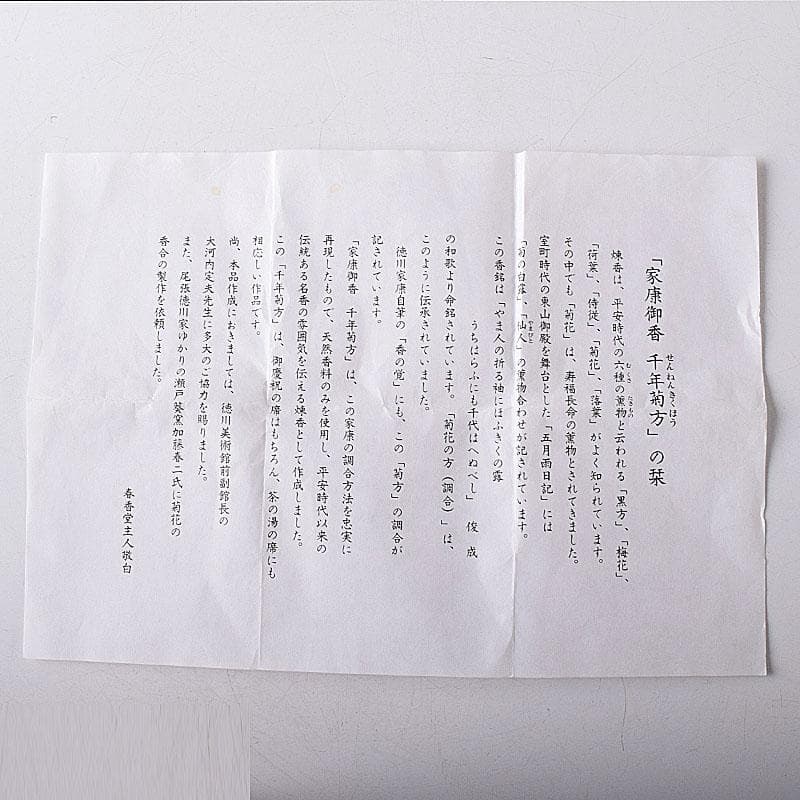 「家康御香 千年菊方」の栞
せんねんきくほう
煉香は、平安時代の六種の薫物と云われる「黒方」、「梅花」、
むくさ たきもの
「荷葉」、「侍従」、「菊花」、「落葉」がよく知られています。
その中でも「菊花」は、寿福長命の薫物とされてきました。
室町時代の東山御殿を舞台とした「五月雨日記」には
「菊の白露」、「仙人」の薫物合わせが記されています。
この香銘は「やま人の折る袖にほふきくの露
うちはらふにも千代はへぬべし」 俊 成
の和歌より命銘されています。「菊花の方（調合）」は、
このように伝承されていました。
徳川家康自筆の「香の覚」にも、この「菊方」の調合が
記されています。
「家康御香 千年菊方」は、この家康の調合方法を忠実に
再現したもので、天然香料のみを使用し、平安時代以来の
伝統ある名香の雰囲気を伝える煉香として作成しました。
この「千年菊方」は、御慶祝の席はもちろん、茶の湯の席にも
相応しい作品です。
尚、本品作成におきましては、徳川美術館前副館長の
大河内定夫先生に多大のご協力を賜りました。
また、尾張徳川家ゆかりの瀬戸葵窯加藤春二氏に菊花の
香合の製作を依頼しました。
春香堂主人敬白